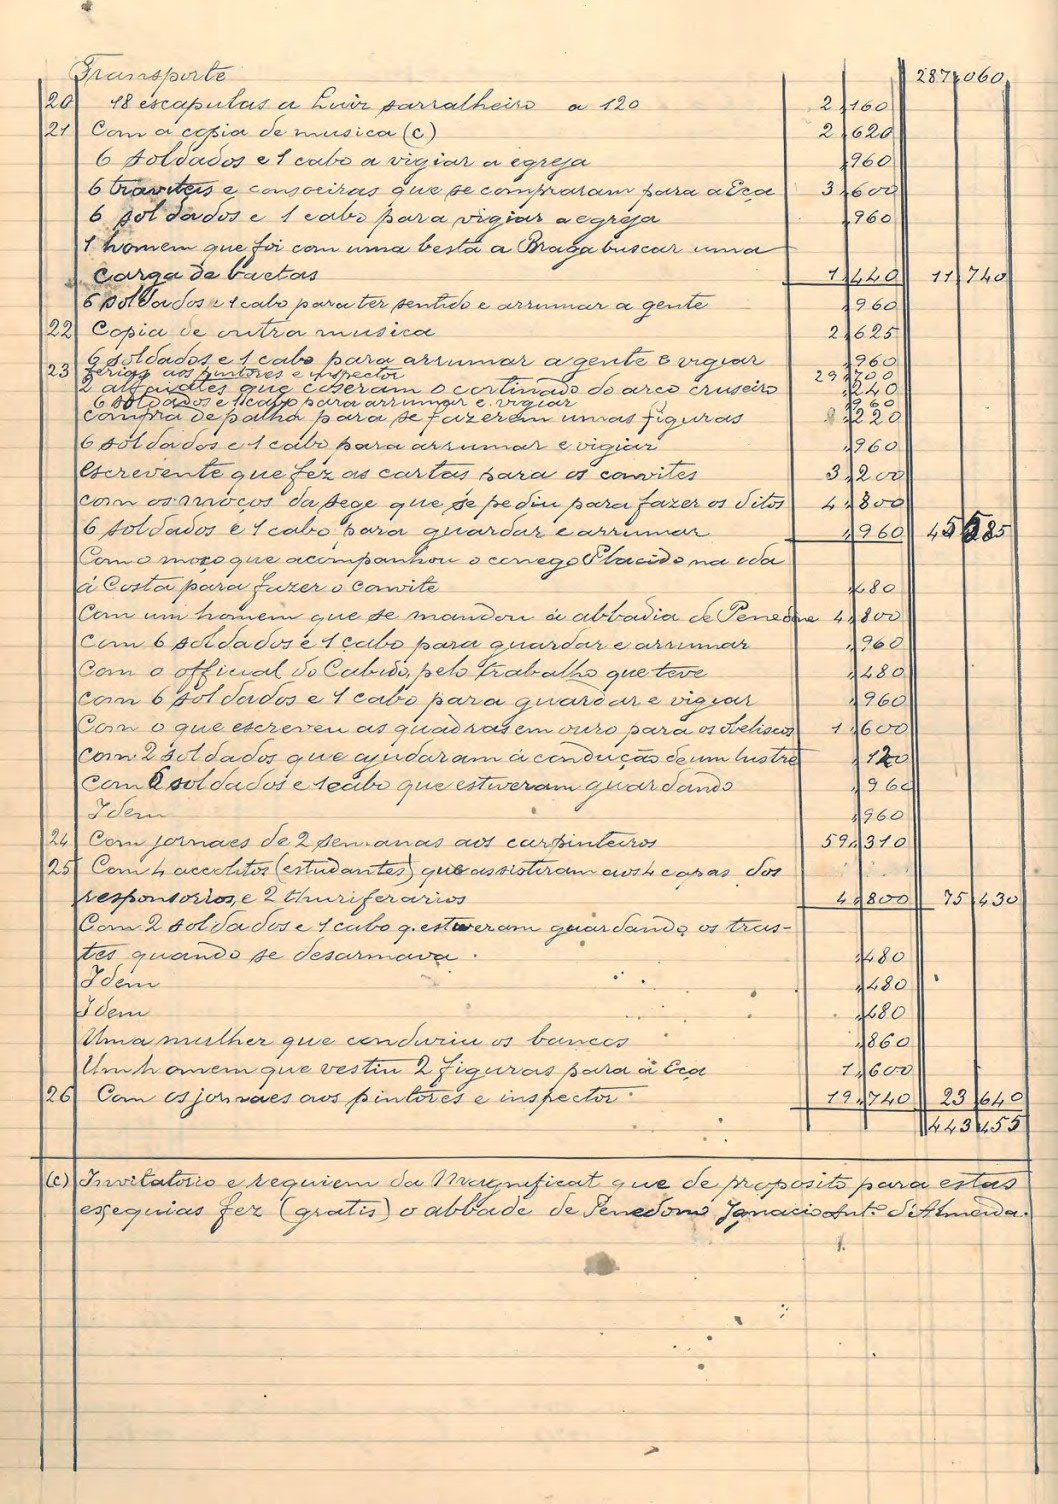 Transporte 287,060
20 18 escapulas a Luiz sarralheiro a 120 2,160
21 Com a copia de musica (c) 2,620
6 soldados e 1 cabo a vigiar a egreja ,960
6 traviteis e consoeiras que se compraram para a Eça 3,600
6 soldados e 1 cabo para vigiar a egreja ,960
1 homem que foi com uma besta a Braga buscar uma
carga de baetas 1,440 11,740
6 soldados e 1 cabo para ter sentido e arrumar a gente ,960
22 Copia de outra musica 2,625
6 soldados e 1 cabo para arrumar a gente e vigiar ,960
23 ferias aos pintores e inspector 29,700
2 alfaiates que coseram o cortinado do arco cruseiro ,240
6 soldados e 1 cabo para arrumar e vigiar ,960
compra de palha para se fazerem umas figuras ,220
6 soldados e 1 cabo para arrumar e vigiar ,960
Escrevente que fez as cartas para os convites 3,200
com os moços da sege que se pediu para fazer os ditos 4,800
6 soldados e 1 cabo para guardar e arrumar ,960 45,585
Com o moço que acompanhou o conego Placido na ida
á Costa para fazer o convite ,480
Com um homem que se mandou á abbadia de Penedono 4,800
Com 6 soldados e 1 cabo para guardar e arrumar ,960
Com o official do Cabido, pelo trabalho que teve ,480
com 6 soldados e 1 cabo para guardar e vigiar ,960
Com o que escreveu as quadras em ouro para os Obeliscos 1,600
com 2 soldados que ajudaram á condução de um lustre ,120
Com 6 soldados e 1 cabo que estiveram guardando ,960
Idem ,960
24 Com jornaes de 2 semanas aos carpinteiros 59,310
25 Com 4 accolitos (estudantes) que assistiram aos 4 capas dos
responsorios, e 2 thuriferarios 4,800 75,430
Com 2 soldados e 1 cabo q. estiveram guardando os tras-
tes quando se desarmava. ,480
Idem ,480
Idem ,480
Uma mulher que conduziu os bancos ,860
Um homem que vestiu 2 figuras para a Eça 1,600
26 Com os jornaes aos pintores e inspector 19,740 23,640
443,455
(c) Invitatorio e requiem da Magnificat que de proposito para estas
exequias fez (gratis) o abbade de Penedono Ignacio Ant.º d'Almeida.